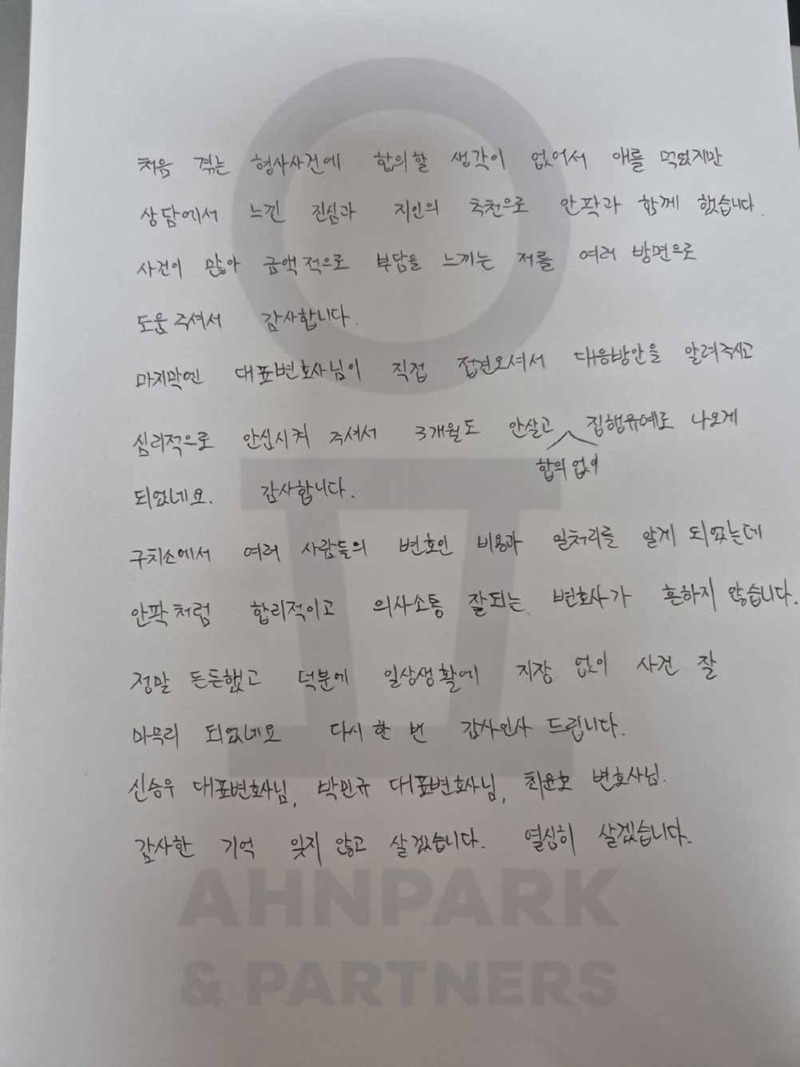 처음 겪는 형사사건에 합의할 생각이 없어서 애를 먹었지만
상담에서 느낀 진심과 지인의 추천으로 안팍과 함께 했습니다.
사건이 많아 금액적으로 부담을 느끼는 저를 여러 방면으로
도움주셔서 감사합니다.
마지막엔 대표변호사님이 직접 접견오셔서 대응방안을 알려주시고
심리적으로 안심시켜 주셔서 3개월도 안살고 집행유예로 나오게
합의 없이
되었네요. 감사합니다.
구치소에서 여러 사람들의 변호인 비용과 일처리를 알게 되었는데
안팍처럼 합리적이고 의사소통 잘되는 변호사가 흔하지 않습니다.
정말 든든했고 덕분에 일상생활에 지장 없이 사건 잘
마무리 되었네요 다시 한 번 감사인사 드립니다.
신승우 대표변호사님, 박민규 대표변호사님, 최윤호 변호사님.
감사한 기억 잊지 않고 살겠습니다. 열심히 살겠습니다.
AHNPARK
& PARTNERS